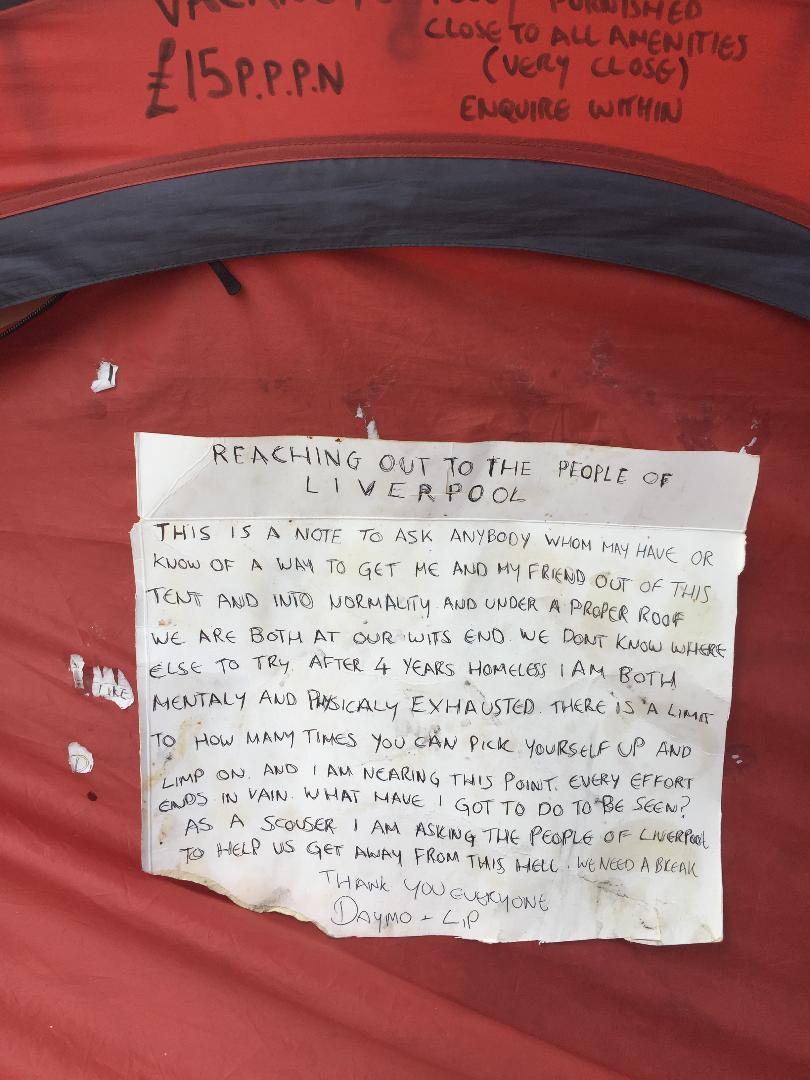 FURNISHED
CLOSE TO ALL AMENITIES
(VERY CLOSE)
£15 P.P.P.N
ENQUIRE WITHIN
REACHING OUT TO THE PEOPLE OF
LIVERPOOL
THIS IS A NOTE TO ASK ANYBODY WHOM MAY HAVE OR
KNOW OF A WAY TO GET ME AND MY FRIEND OUT OF THIS
TENT AND INTO NORMALITY AND UNDER A PROPER ROOF
WE ARE BOTH AT OUR WITS END. WE DONT KNOW WHERE
ELSE TO TRY. AFTER 4 YEARS HOMELESS I AM BOTH
MENTALY AND PHYSICALY EXHAUSTED. THERE IS A LIMIT
TO HOW MANY TIMES YOU CAN PICK YOURSELF UP AND
LIMP ON. AND I AM NEARING THIS POINT. EVERY EFFORT
ENDS IN VAIN. WHAT HAVE I GOT TO DO TO BE SEEN?
AS A SCOUSER I AM ASKING THE PEOPLE OF LIVERPOOL
TO HELP US GET AWAY FROM THIS HELL. WE NEED A BREAK
THANK YOU EVERYONE
DAYMO + LIP